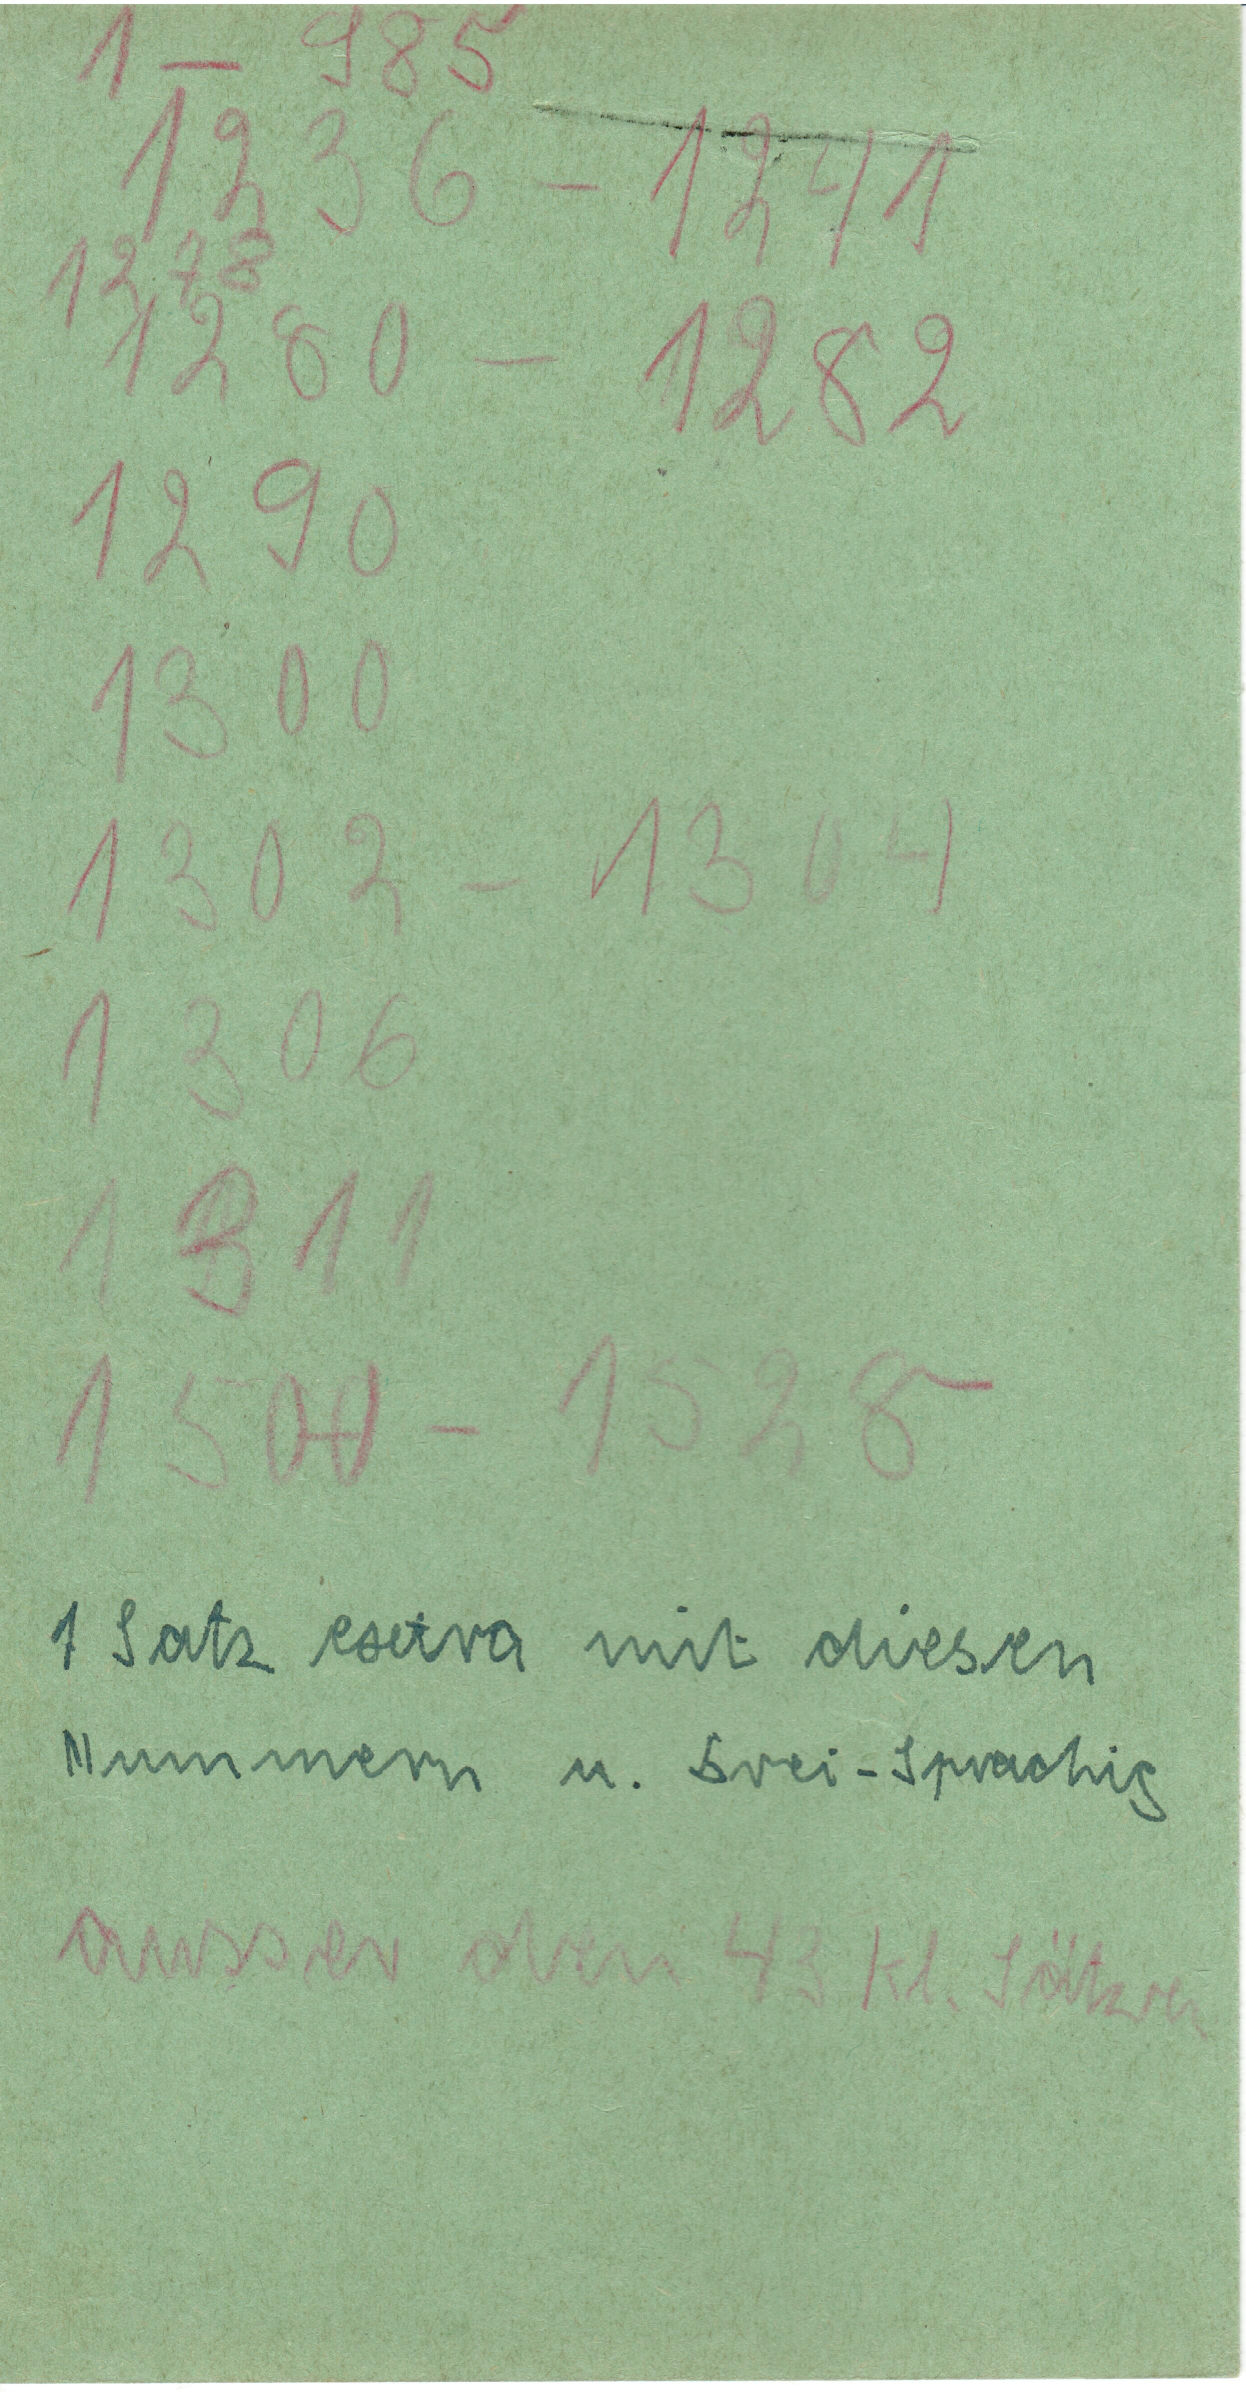 1 – 985
1236 – 1241
1278
1280 – 1282
1290
1300
1302 – 1304
1306
1311
1500 – 1528
1 Satz extra mit diesen
Nummern u. Drei-Sprachig
ausser den 43 kl. Sätzen